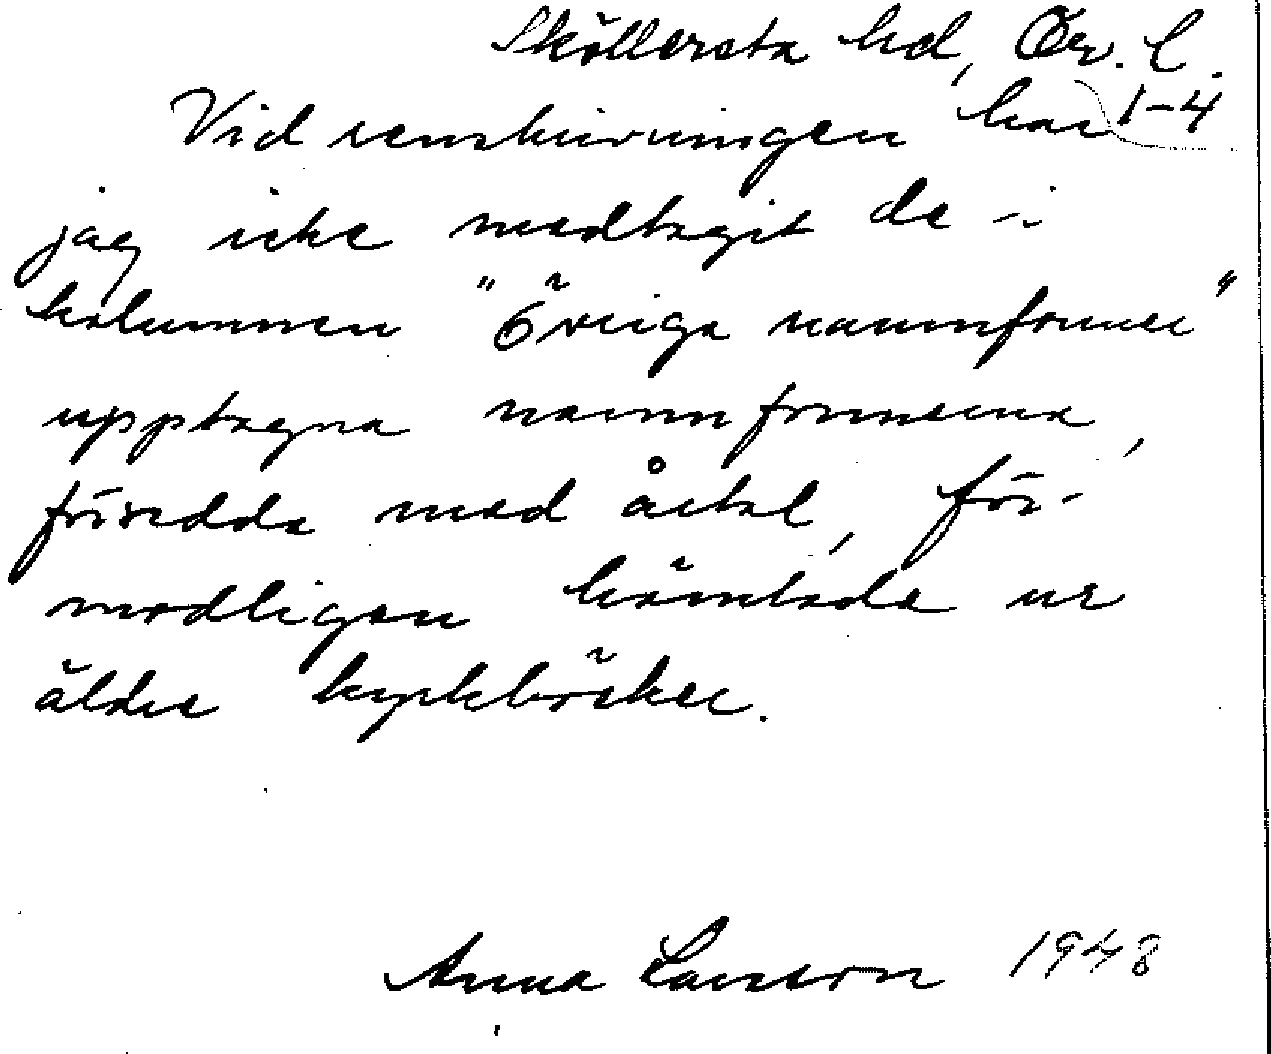 Sköllersta hd, Ör. l.
1-4
Vid renskrivningen har
jag icke medtagit de i
kolumnen "Övriga namnformer"
upptagna namnformerna,
försedda med årtal, för-
modligen hämtade ur
äldre kyrkböcker.
Anna Larsson 1948